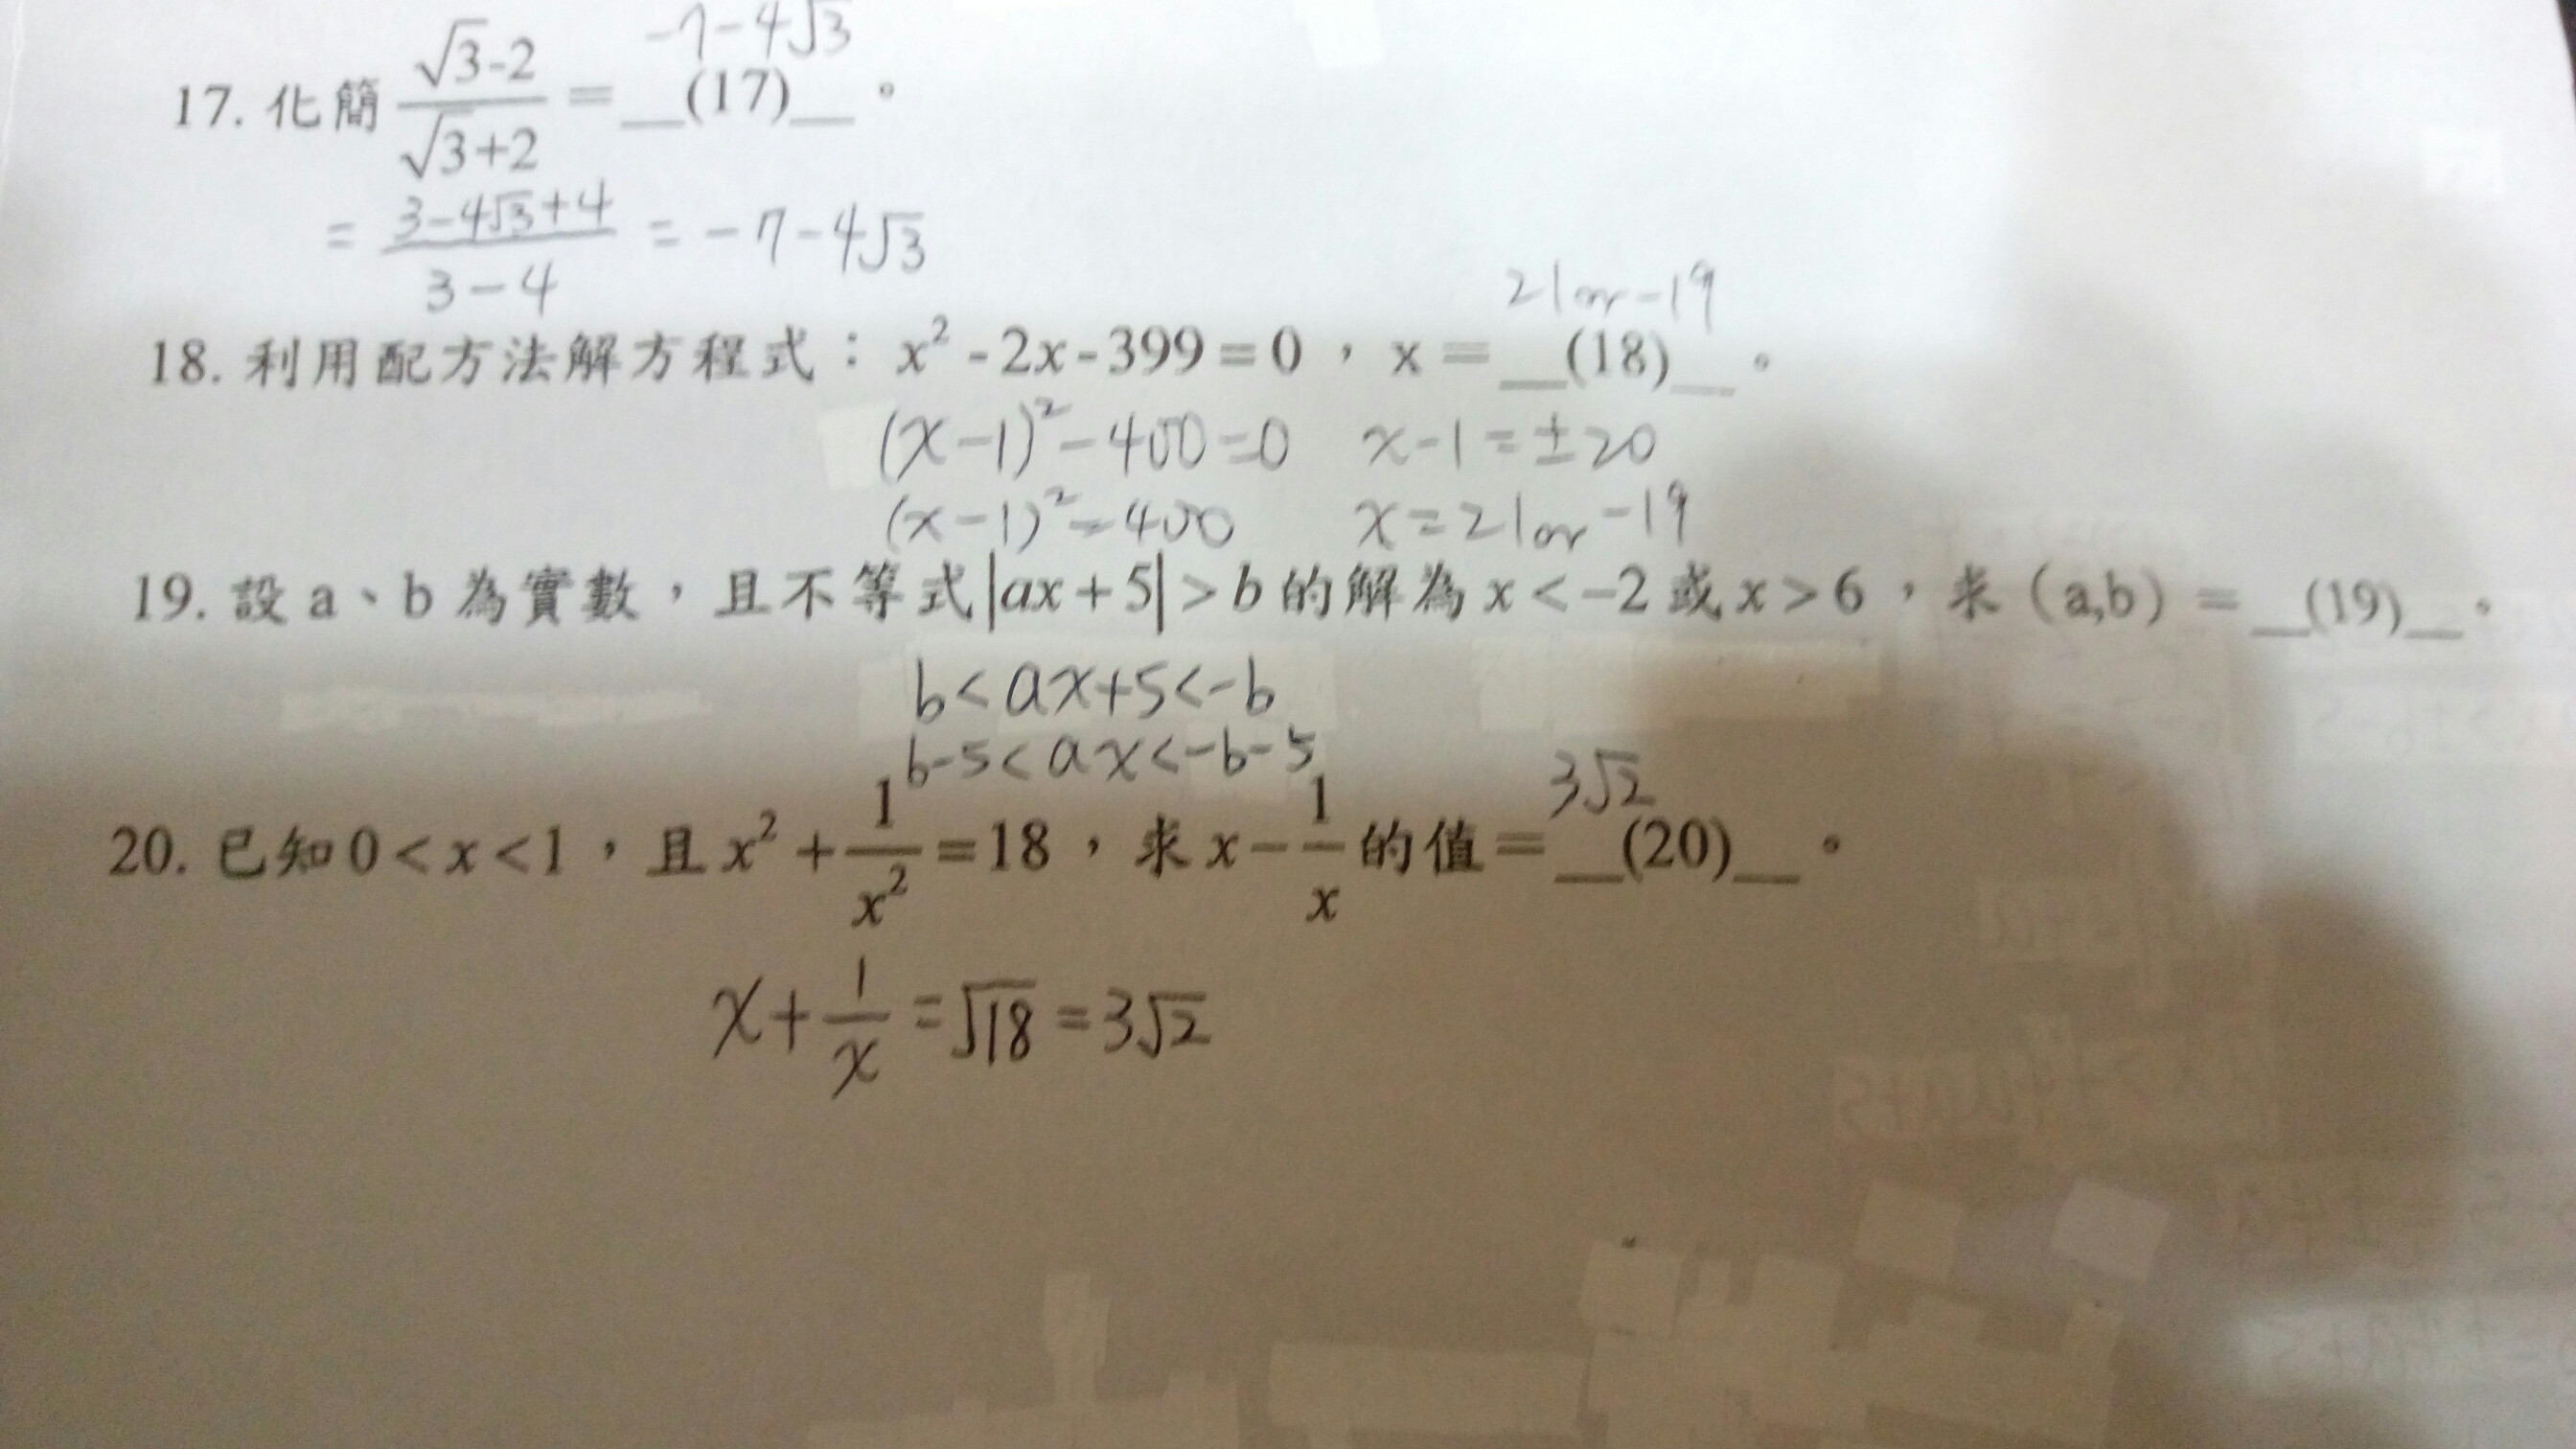 -7-4√3
17. 化簡 (√3-2)/(√3+2) = __(17)__ 。
= (3-4√3+4)/(3-4) = -7-4√3
21or-19
18. 利用配方法解方程式：x²-2x-399=0，x=__(18)__。
(x-1)²-400=0 x-1=±20
(x-1)²=400 x=21or-19
19. 設a、b為實數，且不等式|ax+5|>b的解為x<-2或x>6，求(a,b)=__(19)__。
b<ax+5<-b
b-5<ax<-b-5
3√2
20. 已知0<x<1，且x²+1/x²=18，求x-1/x的值=__(20)__。
x+1/x=√18=3√2